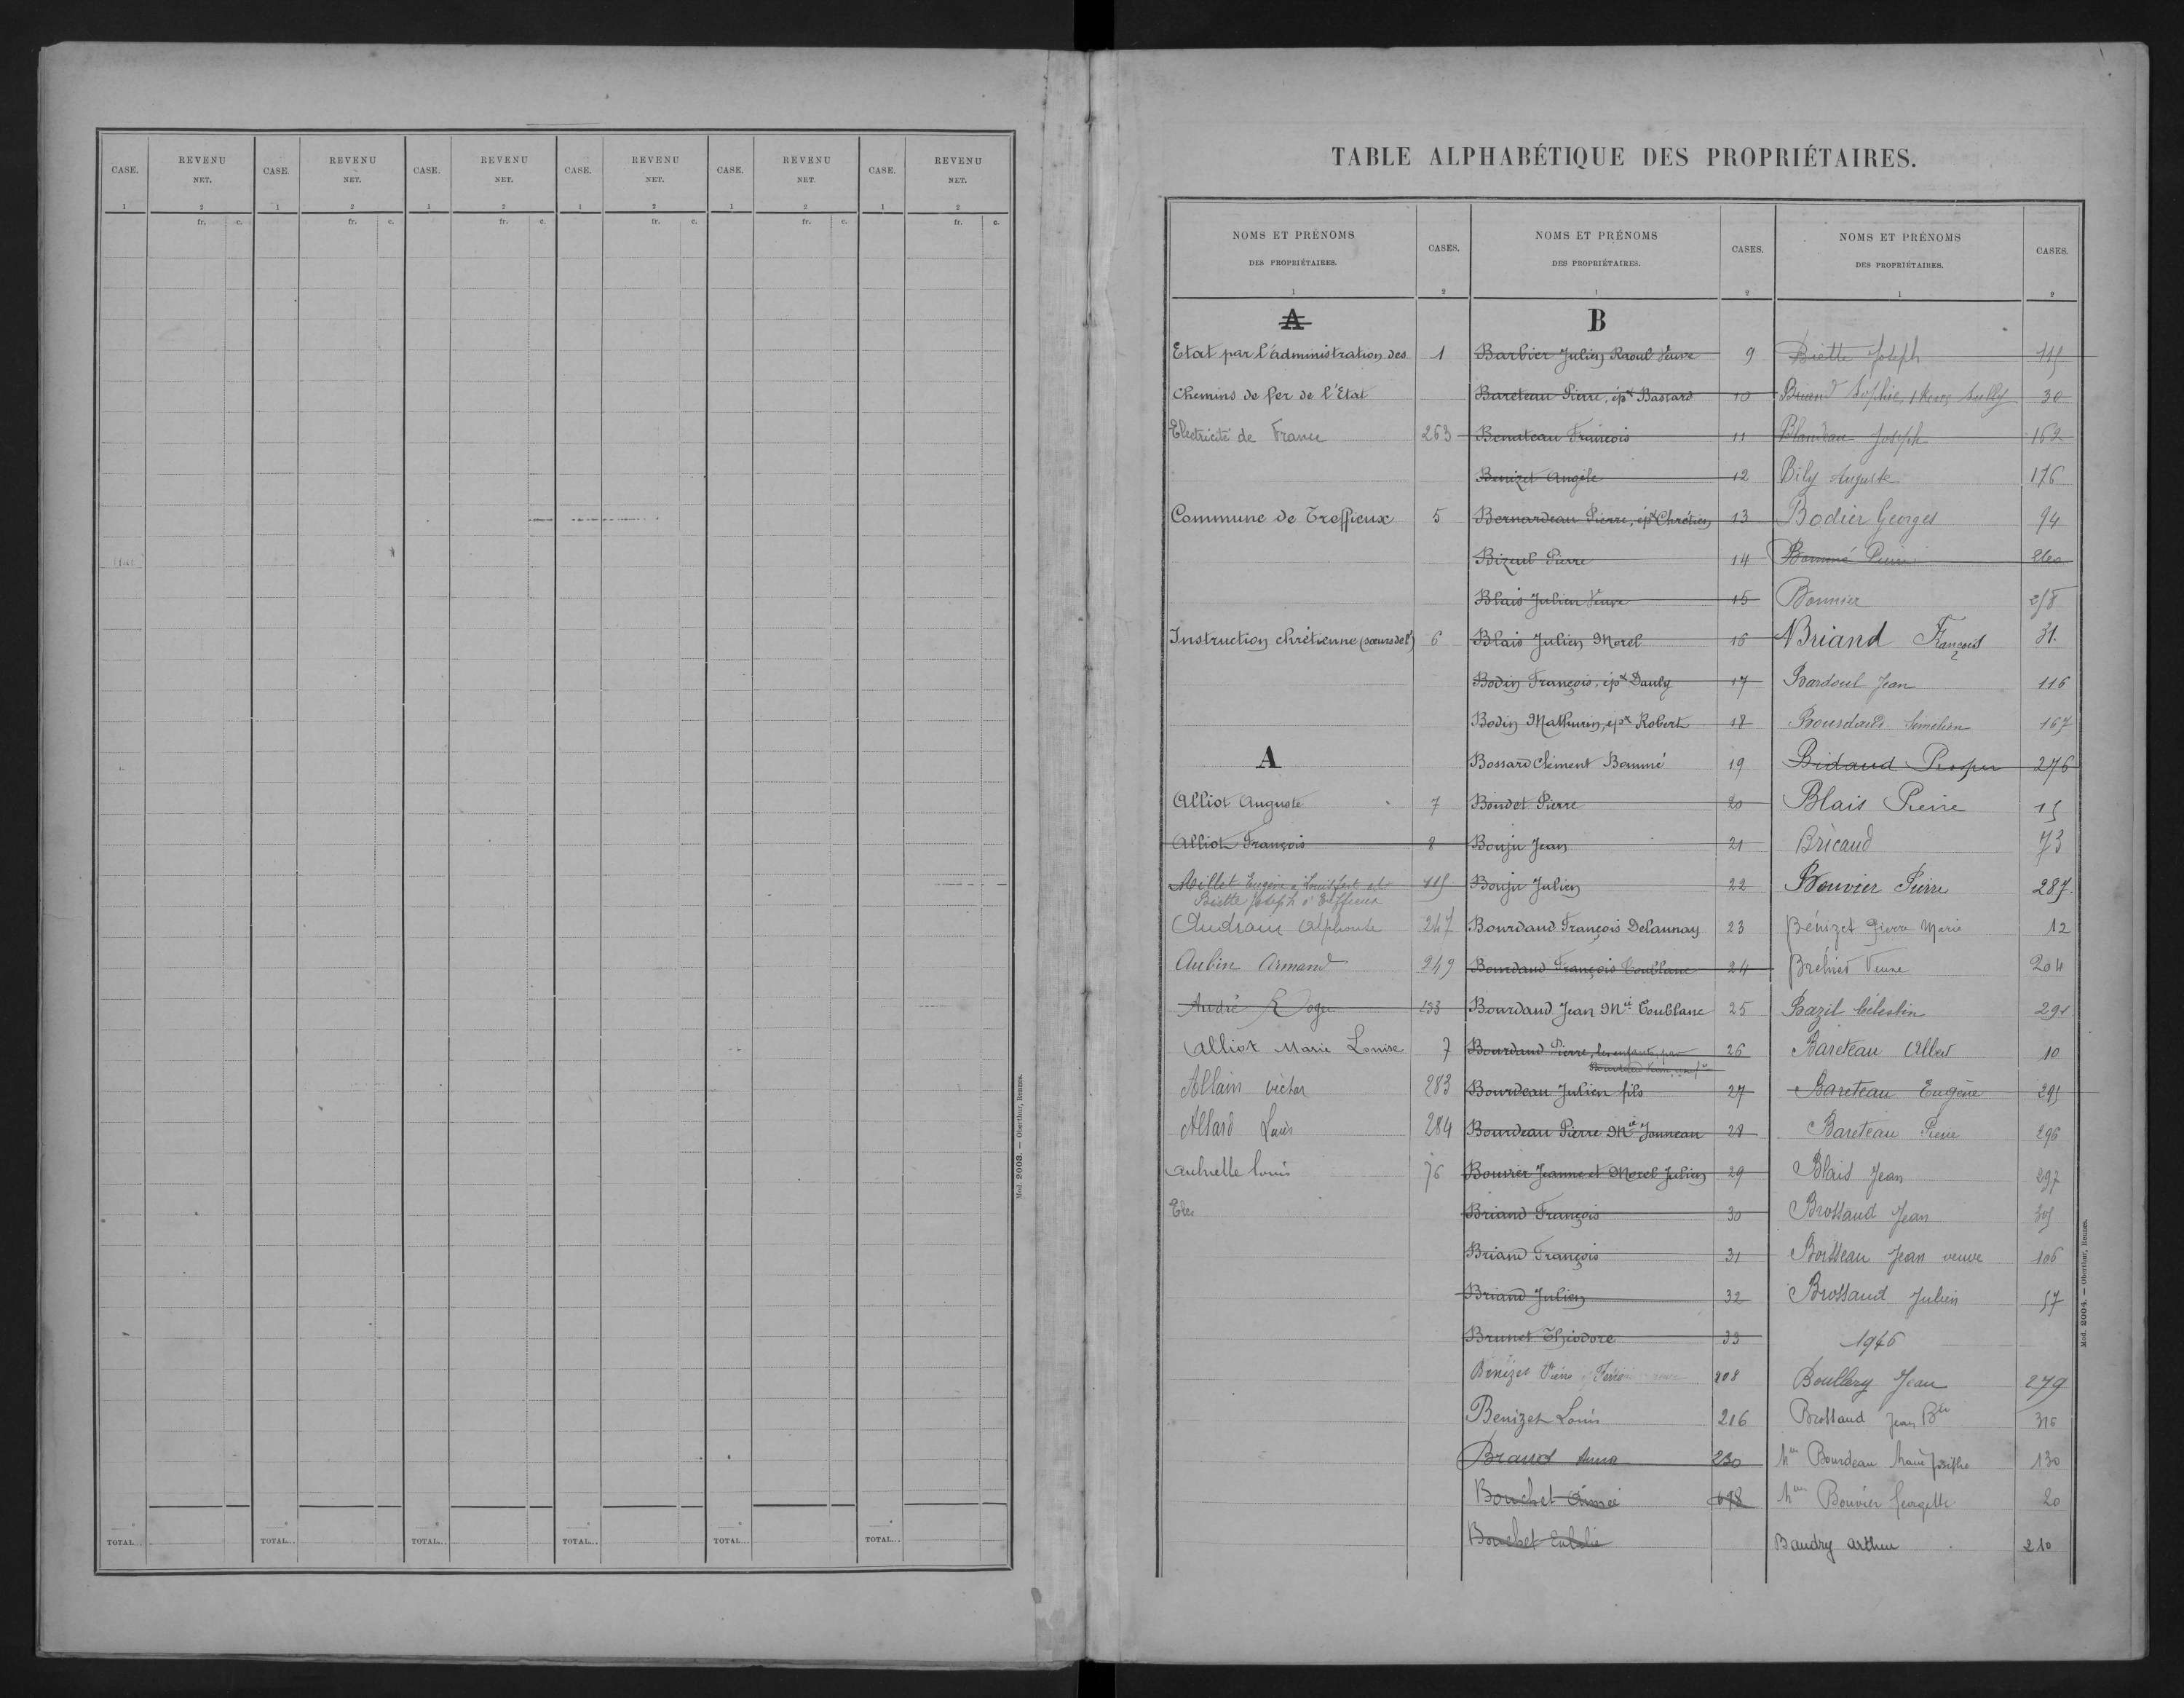 CASE.
REVENU
NET.
CASE.
REVENU
NET.
CASE.
REVENU
NET.
CASE.
REVENU
NET.
CASE.
REVENU
NET.
CASE.
REVENU
NET.
1 2 1 2 1 2 1 2 1 2 1 2
fr. c. fr. c. fr. c. fr. c. fr. c. fr. c.
TOTAL... TOTAL... TOTAL... TOTAL... TOTAL... TOTAL...
Mod. 2003. — Oberthur, Rennes.
TABLE ALPHABÉTIQUE DES PROPRIÉTAIRES.
NOMS ET PRÉNOMS
DES PROPRIÉTAIRES.
1
CASES.
2
A
Etat par l'administration des 1
Chemins de fer de l'Etat
Electricité de France 263
Commune de Treffieux 5
Instruction chrétienne (sœurs de l') 6
A
Alliot Auguste 7
Alliot François 8
Millet Eugène à Louisfert et 115
Biette Joseph à Treffieux
Audrain Alphonse 247
Aubin Armand 249
André Roger 133
Alliot Marie Louise 7
Allain victor 283
Allard Louis 284
Aubrelle Louis 76
Elec
NOMS ET PRÉNOMS
DES PROPRIÉTAIRES.
1
CASES.
2
B
Barbier Julien Raoul Veuve 9
Bareteau Pierre, épx Bassard 10
Benateau François 11
Benizet Angèle 12
Bernardeau Pierre, épx Chrétien 13
Bizeul Pierre 14
Blais Julien Veuve 15
Blais Julien Morel 16
Bodin François, épx Dauly 17
Bodin Mathurin, épx Robert 18
Bossard Clément Bommé 19
Boudet Pierre 20
Bouju Jean 21
Bouju Julien 22
Bourdaud François Delaunay 23
Bourdaud François Toublanc 24
Bourdaud Jean Mie Toublanc 25
Bourdaud Pierre, les enfants par 26
Bourdeau Julien fils 27
Bourdeau Pierre Mie Jouneau 28
Bouvier Jeanne et Morel Julien 29
Briand François 30
Briand François 31
Briand Julien 32
Brunet Théodore 33
Benizet Pierre 208
Benizet Louis 216
Braud Anna 230
Bouchet Aimée
Bouchet Eulalie
NOMS ET PRÉNOMS
DES PROPRIÉTAIRES.
1
CASES.
2
Biette Joseph 115
Sophie 30
Blandeau Joseph 162
Bily Auguste 176
Bodier Georges 94
Bommé Pierre 260
Bonnier 258
Briand François 31
Bardoul Jean 116
Bourdaud 167
Bidaud Prosper 276
Blais Pierre 15
Bricaud 73
Bouvier Pierre 287
Bénizet Pierre Marie 12
Bréhier Veuve 204
Bazil Célestin 291
Bareteau Albert 10
Bareteau Eugène 295
Bareteau Pierre 296
Blais Jean 297
Brossaud Jean 305
Boisseau Jean veuve 106
Brossaud Julien 57
1946
Boullery Jean 279
Brossaud Jean Bte 316
Mme Bourdeau Marie Josèphe 130
Mme Bouvier Georgette 20
Baudry Arthur 210
Mod. 2004. — Oberthur, Rennes.